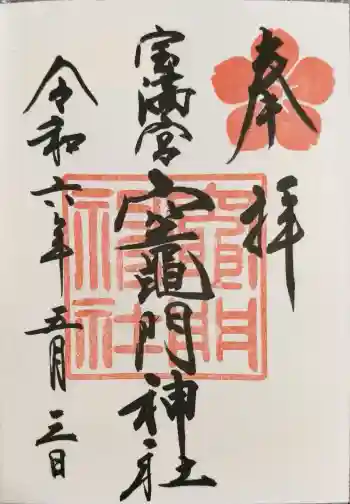 奉拝
宝満宮
竈門神社
令和六年五月三日
竈門
神社